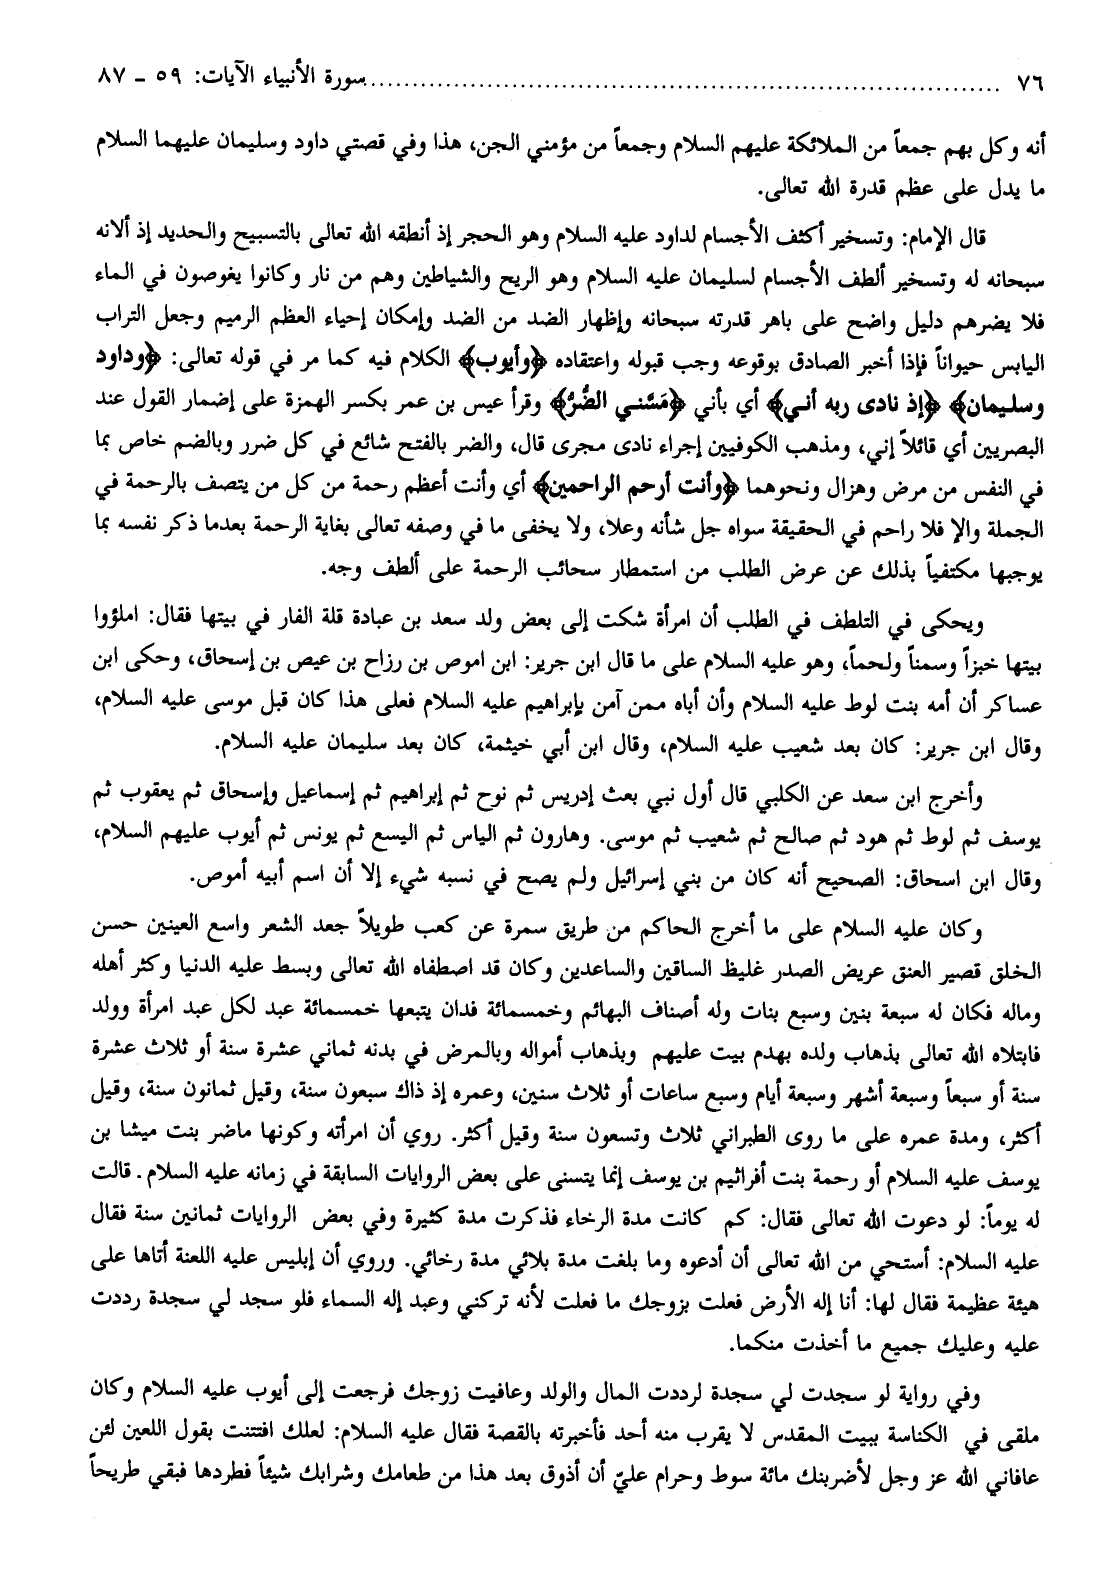 ٧٦ ........................................................................ سورة الأنبياء الآيات: ٥٩ - ٨٧
أنه وكل بهم جمعاً من الملائكة عليهم السلام وجمعاً من مؤمني الجن، هذا وفي قصتي داود وسليمان عليهما السلام
ما يدل على عظم قدرة الله تعالى.
قال الإمام: وتسخير أكثف الأجسام لداود عليه السلام وهو الحجر إذ أنطقه الله تعالى بالتسبيح والحديد إذ ألانه
سبحانه له وتسخير ألطف الأجسام لسليمان عليه السلام وهو الريح والشياطين وهم من نار وكانوا يغوصون في الماء
فلا يضرهم دليل واضح على باهر قدرته سبحانه وإظهار الضد من الضد وإمكان إحياء العظم الرميم وجعل التراب
اليابس حيواناً فإذا أخبر الصادق بوقوعه وجب قبوله واعتقاده ﴿وأيوب﴾ الكلام فيه كما مر في قوله تعالى: ﴿وداود
وسليمان﴾ ﴿إذ نادى ربه أني﴾ أي بأني ﴿مَسَّني الضُّرُّ﴾ وقرأ عيس بن عمر بكسر الهمزة على إضمار القول عند
البصريين أي قائلاً إني، ومذهب الكوفيين إجراء نادى مجرى قال، والضر بالفتح شائع في كل ضرر وبالضم خاص بما
في النفس من مرض وهزال ونحوهما ﴿وأنت أرحم الراحمين﴾ أي وأنت أعظم رحمة من كل من يتصف بالرحمة في
الجملة وإلا فلا راحم في الحقيقة سواه جل شأنه وعلا، ولا يخفى ما في وصفه تعالى بغاية الرحمة بعدما ذكر نفسه بما
يوجبها مكتفياً بذلك عن عرض الطلب من استمطار سحائب الرحمة على ألطف وجه.
ويحكى في التلطف في الطلب أن امرأة شكت إلى بعض ولد سعد بن عبادة قلة الفار في بيتها فقال: املؤوا
بيتها خبزاً وسمناً ولحماً، وهو عليه السلام على ما قال ابن جرير: ابن اموص بن رزاح بن عيص بن إسحاق، وحكى ابن
عساكر أن أمه بنت لوط عليه السلام وأن أباه ممن آمن بإبراهيم عليه السلام فعلى هذا كان قبل موسى عليه السلام،
وقال ابن جرير: كان بعد شعيب عليه السلام، وقال ابن أبي خيثمة، كان بعد سليمان عليه السلام.
وأخرج ابن سعد عن الكلبي قال أول نبي بعث إدريس ثم نوح ثم إبراهيم ثم إسماعيل وإسحاق ثم يعقوب ثم
يوسف ثم لوط ثم هود ثم صالح ثم شعيب ثم موسى. وهارون ثم الياس ثم اليسع ثم يونس ثم أيوب عليهم السلام،
وقال ابن اسحاق: الصحيح أنه كان من بني إسرائيل ولم يصح في نسبه شيء إلا أن اسم أبيه أموص.
وكان عليه السلام على ما أخرج الحاكم من طريق سمرة عن كعب طويلاً جعد الشعر واسع العينين حسن
الخلق قصير العنق عريض الصدر غليظ الساقين والساعدين وكان قد اصطفاه الله تعالى وبسط عليه الدنيا وكثر أهله
وماله فكان له سبعة بنين وسبع بنات وله أصناف البهائم وخمسمائة فدان يتبعها خمسمائة عبد لكل عبد امرأة وولد
فابتلاه الله تعالى بذهاب ولده بهدم بيت عليهم وبذهاب أمواله وبالمرض في بدنه ثماني عشرة سنة أو ثلاث عشرة
سنة أو سبعاً وسبعة أشهر وسبعة أيام وسبع ساعات أو ثلاث سنين، وعمره إذ ذاك سبعون سنة، وقيل ثمانون سنة، وقيل
أكثر، ومدة عمره على ما روى الطبراني ثلاث وتسعون سنة وقيل أكثر. روي أن امرأته وكونها ماضر بنت ميشا بن
يوسف عليه السلام أو رحمة بنت أفراثيم بن يوسف إنما يتسنى على بعض الروايات السابقة في زمانه عليه السلام ـ قالت
له يوماً: لو دعوت الله تعالى فقال: كم كانت مدة الرخاء فذكرت مدة كثيرة وفي بعض الروايات ثمانين سنة فقال
عليه السلام: أستحي من الله تعالى أن أدعوه وما بلغت مدة بلائي مدة رخائي. وروي أن إبليس عليه اللعنة أتاها على
هيئة عظيمة فقال لها: أنا إله الأرض فعلت بزوجك ما فعلت لأنه تركني وعبد إله السماء فلو سجد لي سجدة رددت
عليه وعليك جميع ما أخذت منكما.
وفي رواية لو سجدت لي سجدة لرددت المال والولد وعافيت زوجك فرجعت إلى أيوب عليه السلام وكان
ملقى في الكناسة ببيت المقدس لا يقرب منه أحد فأخبرته بالقصة فقال عليه السلام: لعلك افتتنت بقول اللعين لئن
عافاني الله عز وجل لأضربنك مائة سوط وحرام عليّ أن أذوق بعد هذا من طعامك وشرابك شيئاً فطردها فبقي طريحاً